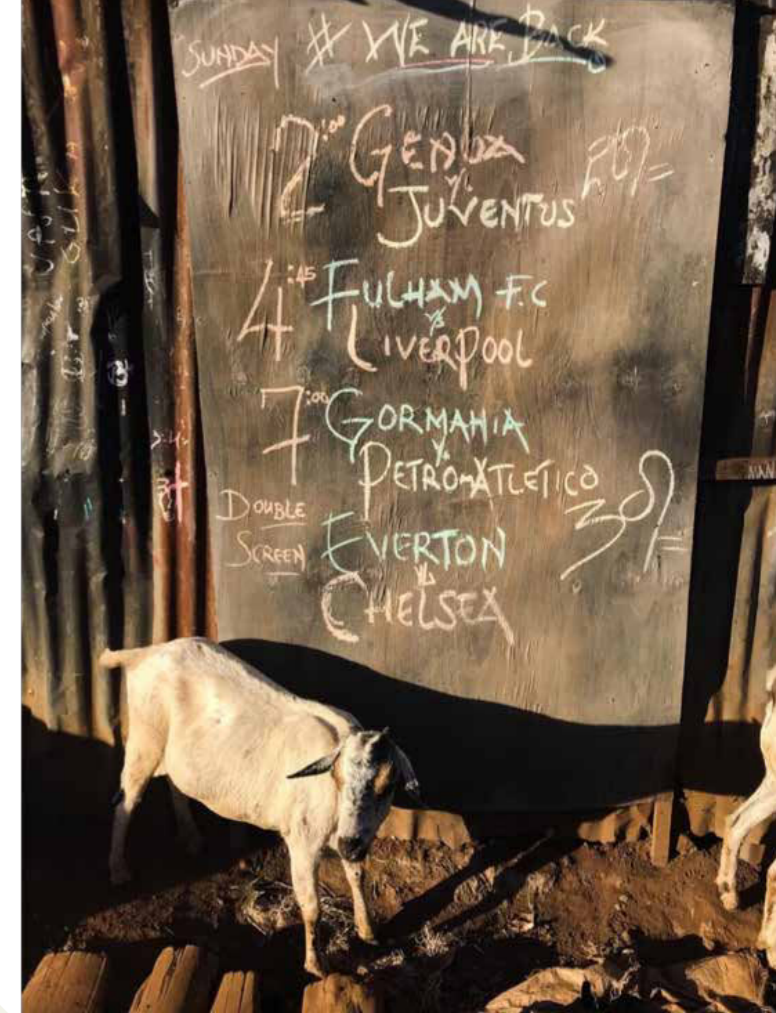 SUNDAY # WE ARE BACK
2:00 GENOA 20/=
Vs
JUVENTUS
4:45 FULHAM F.C
Vs
LIVERPOOL
7:00 GORMAHIA
Vs
PETRO ATLETICO 30/=
DOUBLE
SCREEN EVERTON
Vs
CHELSEA